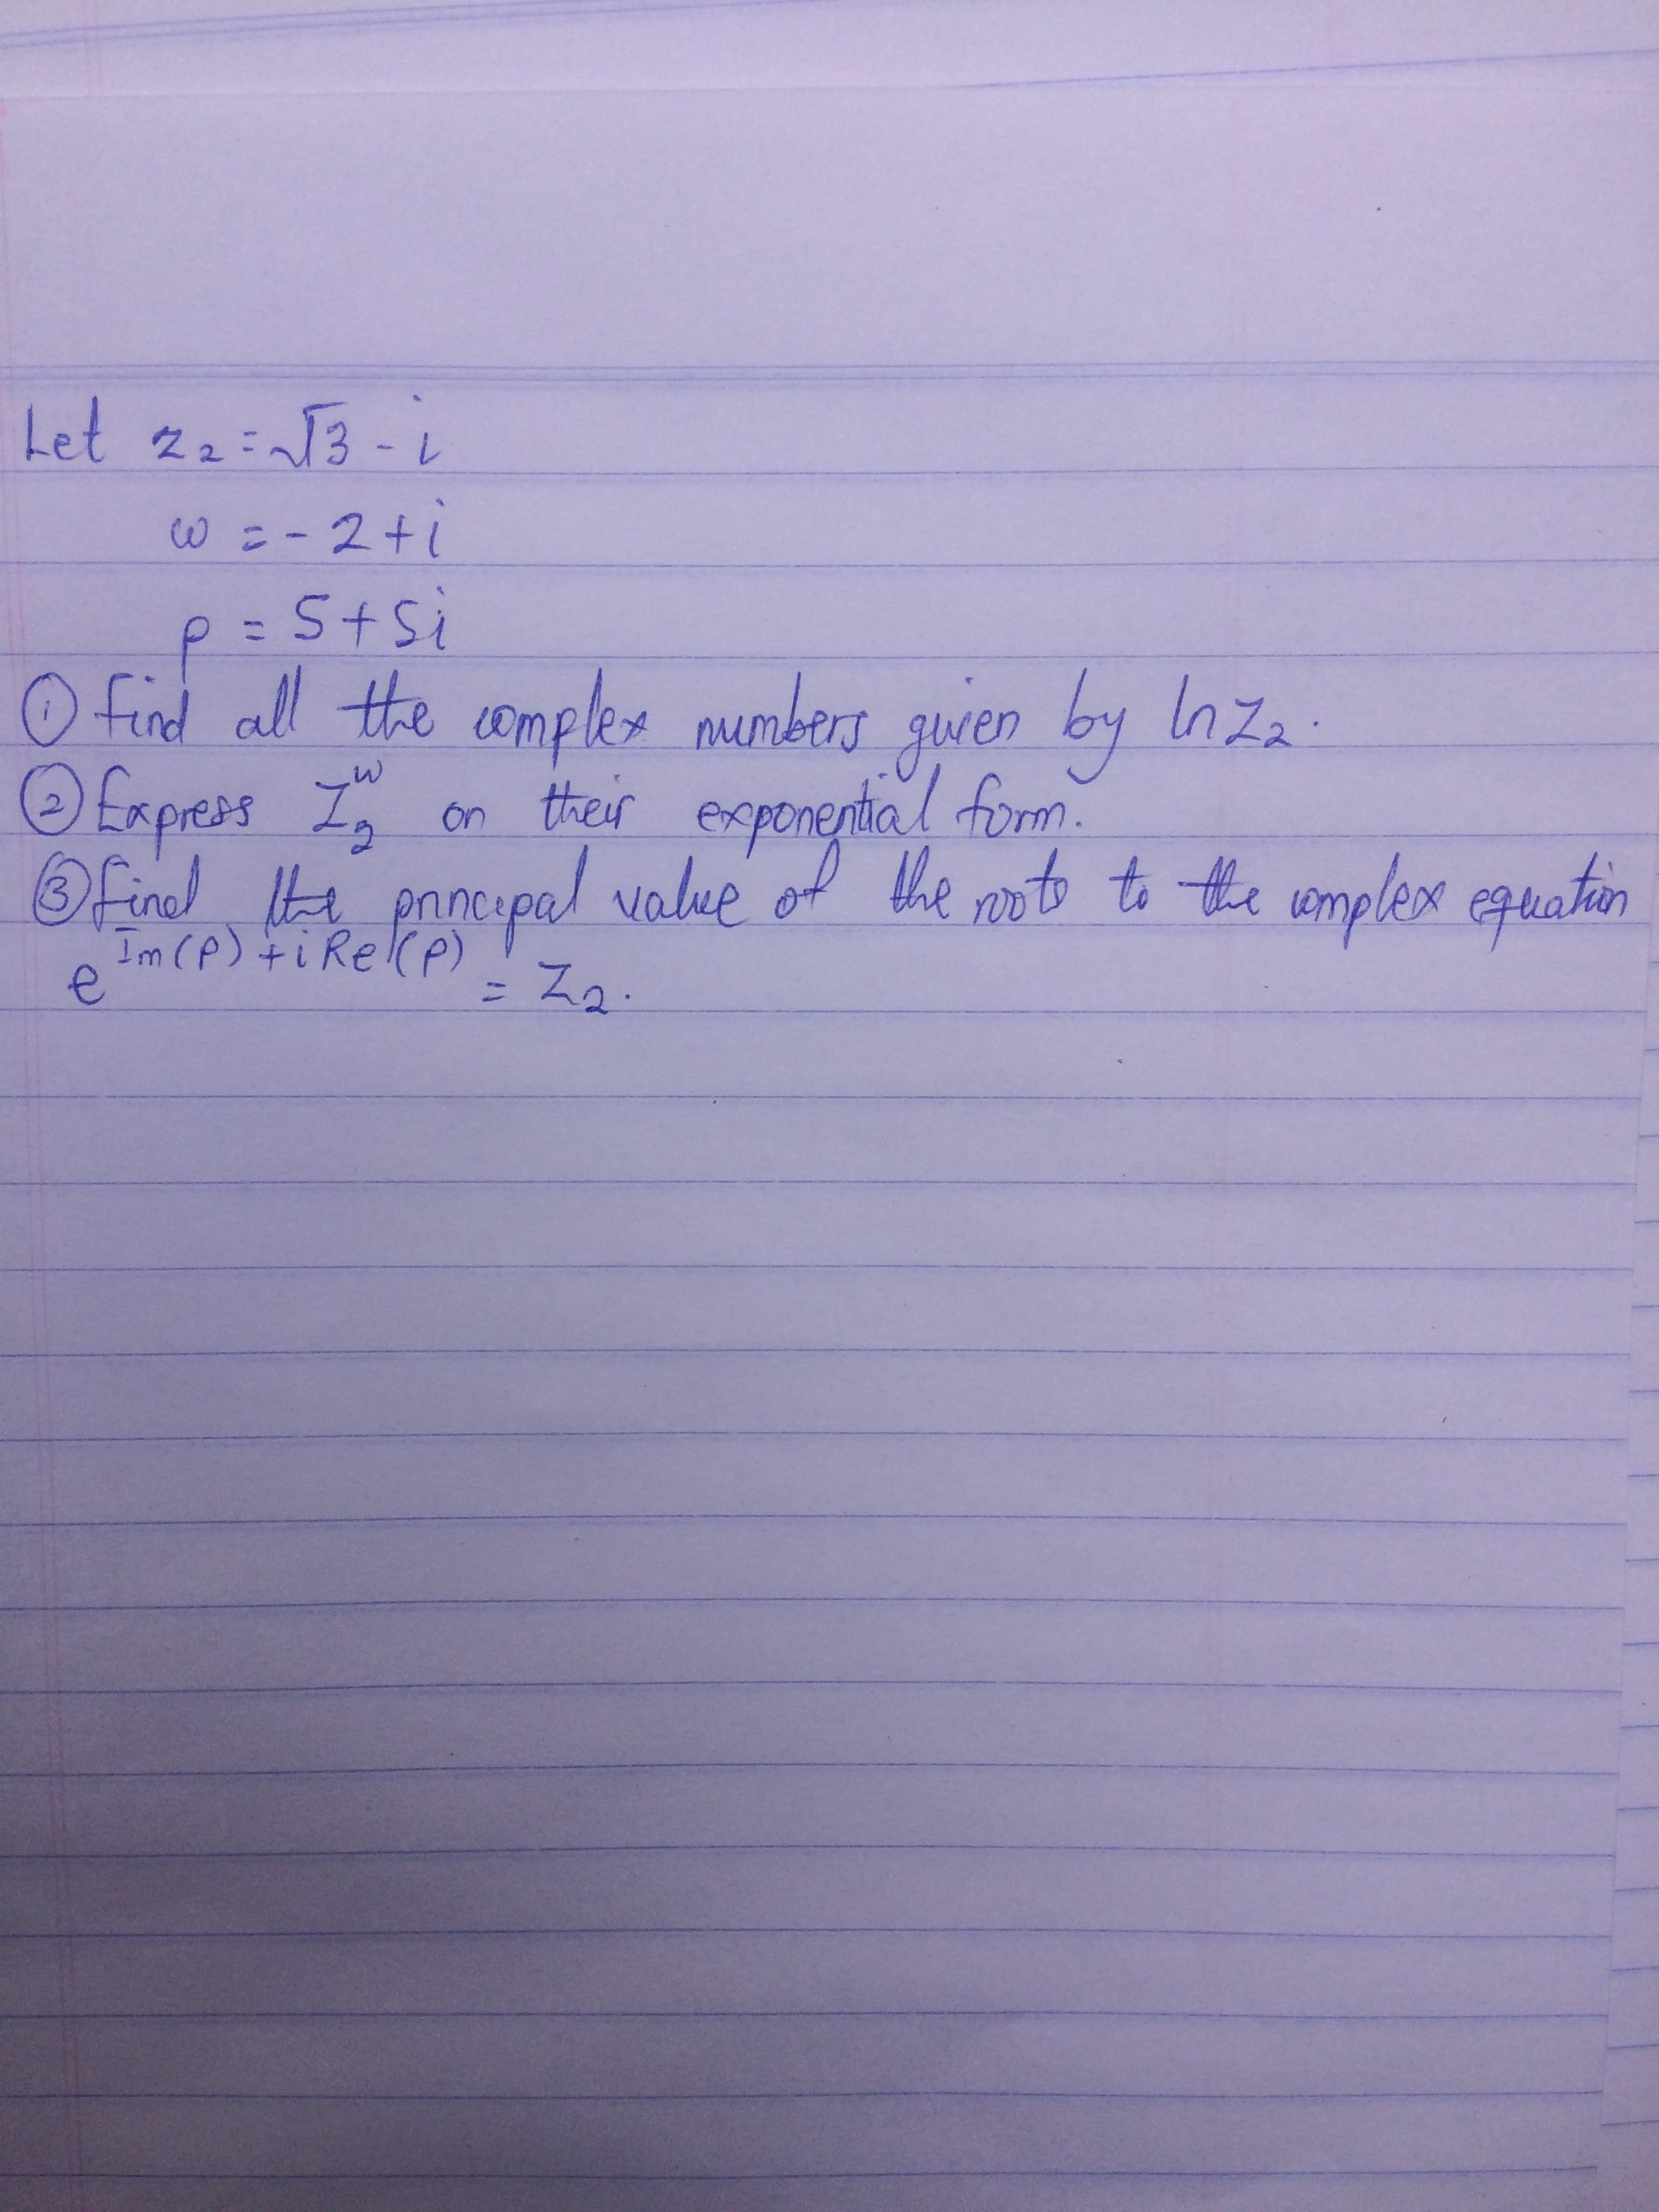 Let z₂ = √3 - i
w = - 2 + i
p = 5 + 5i
① find all the complex numbers given by ln Z₂.
② Express Z₂ʷ on their exponential form.
③ find the principal value of the roots to the complex equation
e^(Im(p) + i Re(p)) = Z₂.